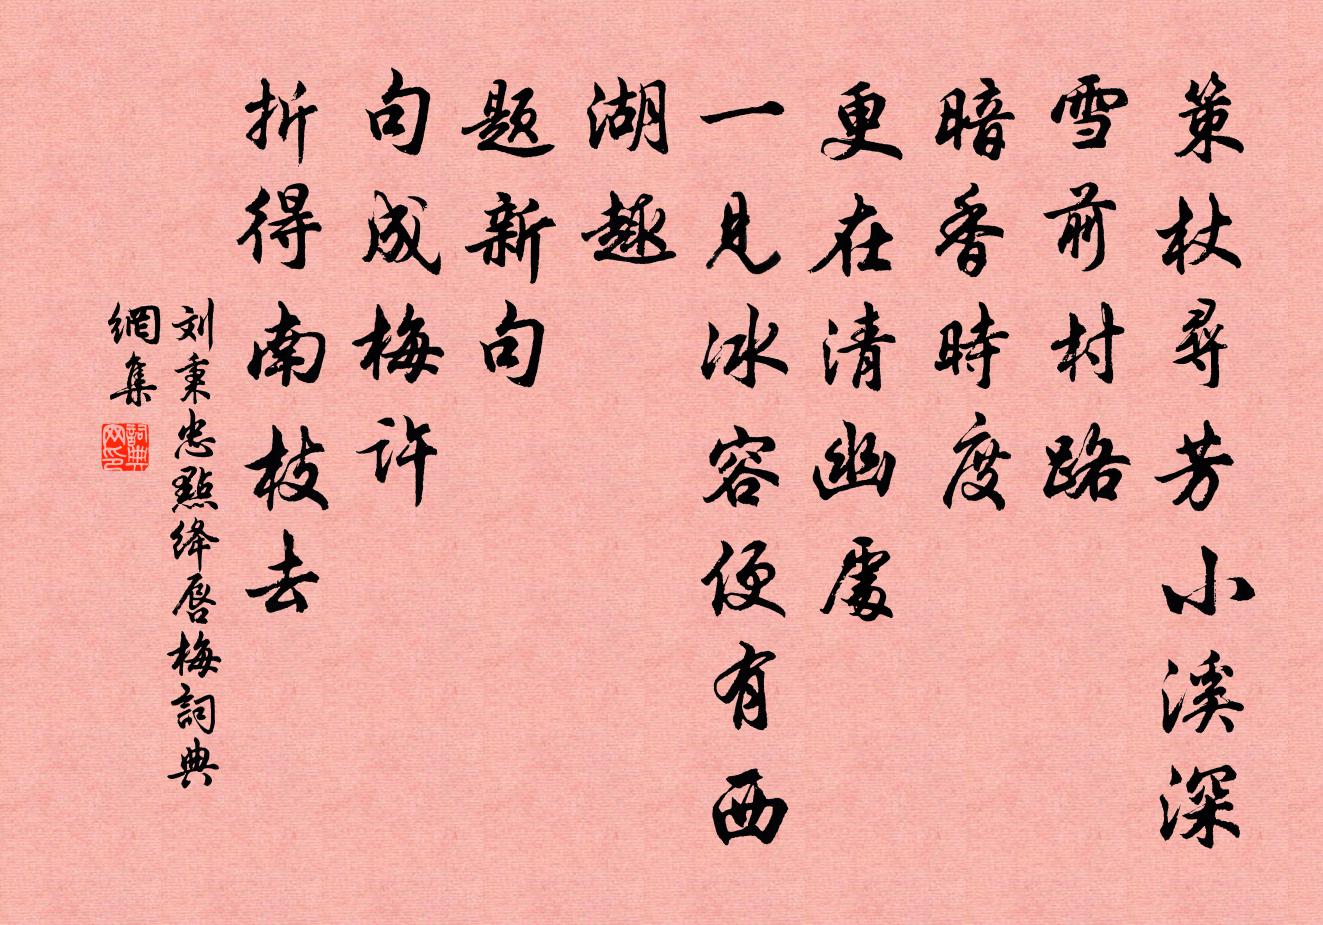 策杖尋芳小溪深
雪前村路
暗香時度
更在清幽處
一見冰容便有西
湖趣
題新句
句成梅許
折得南枝去
刘秉忠點绛唇梅詞典
網集
詞典
网印